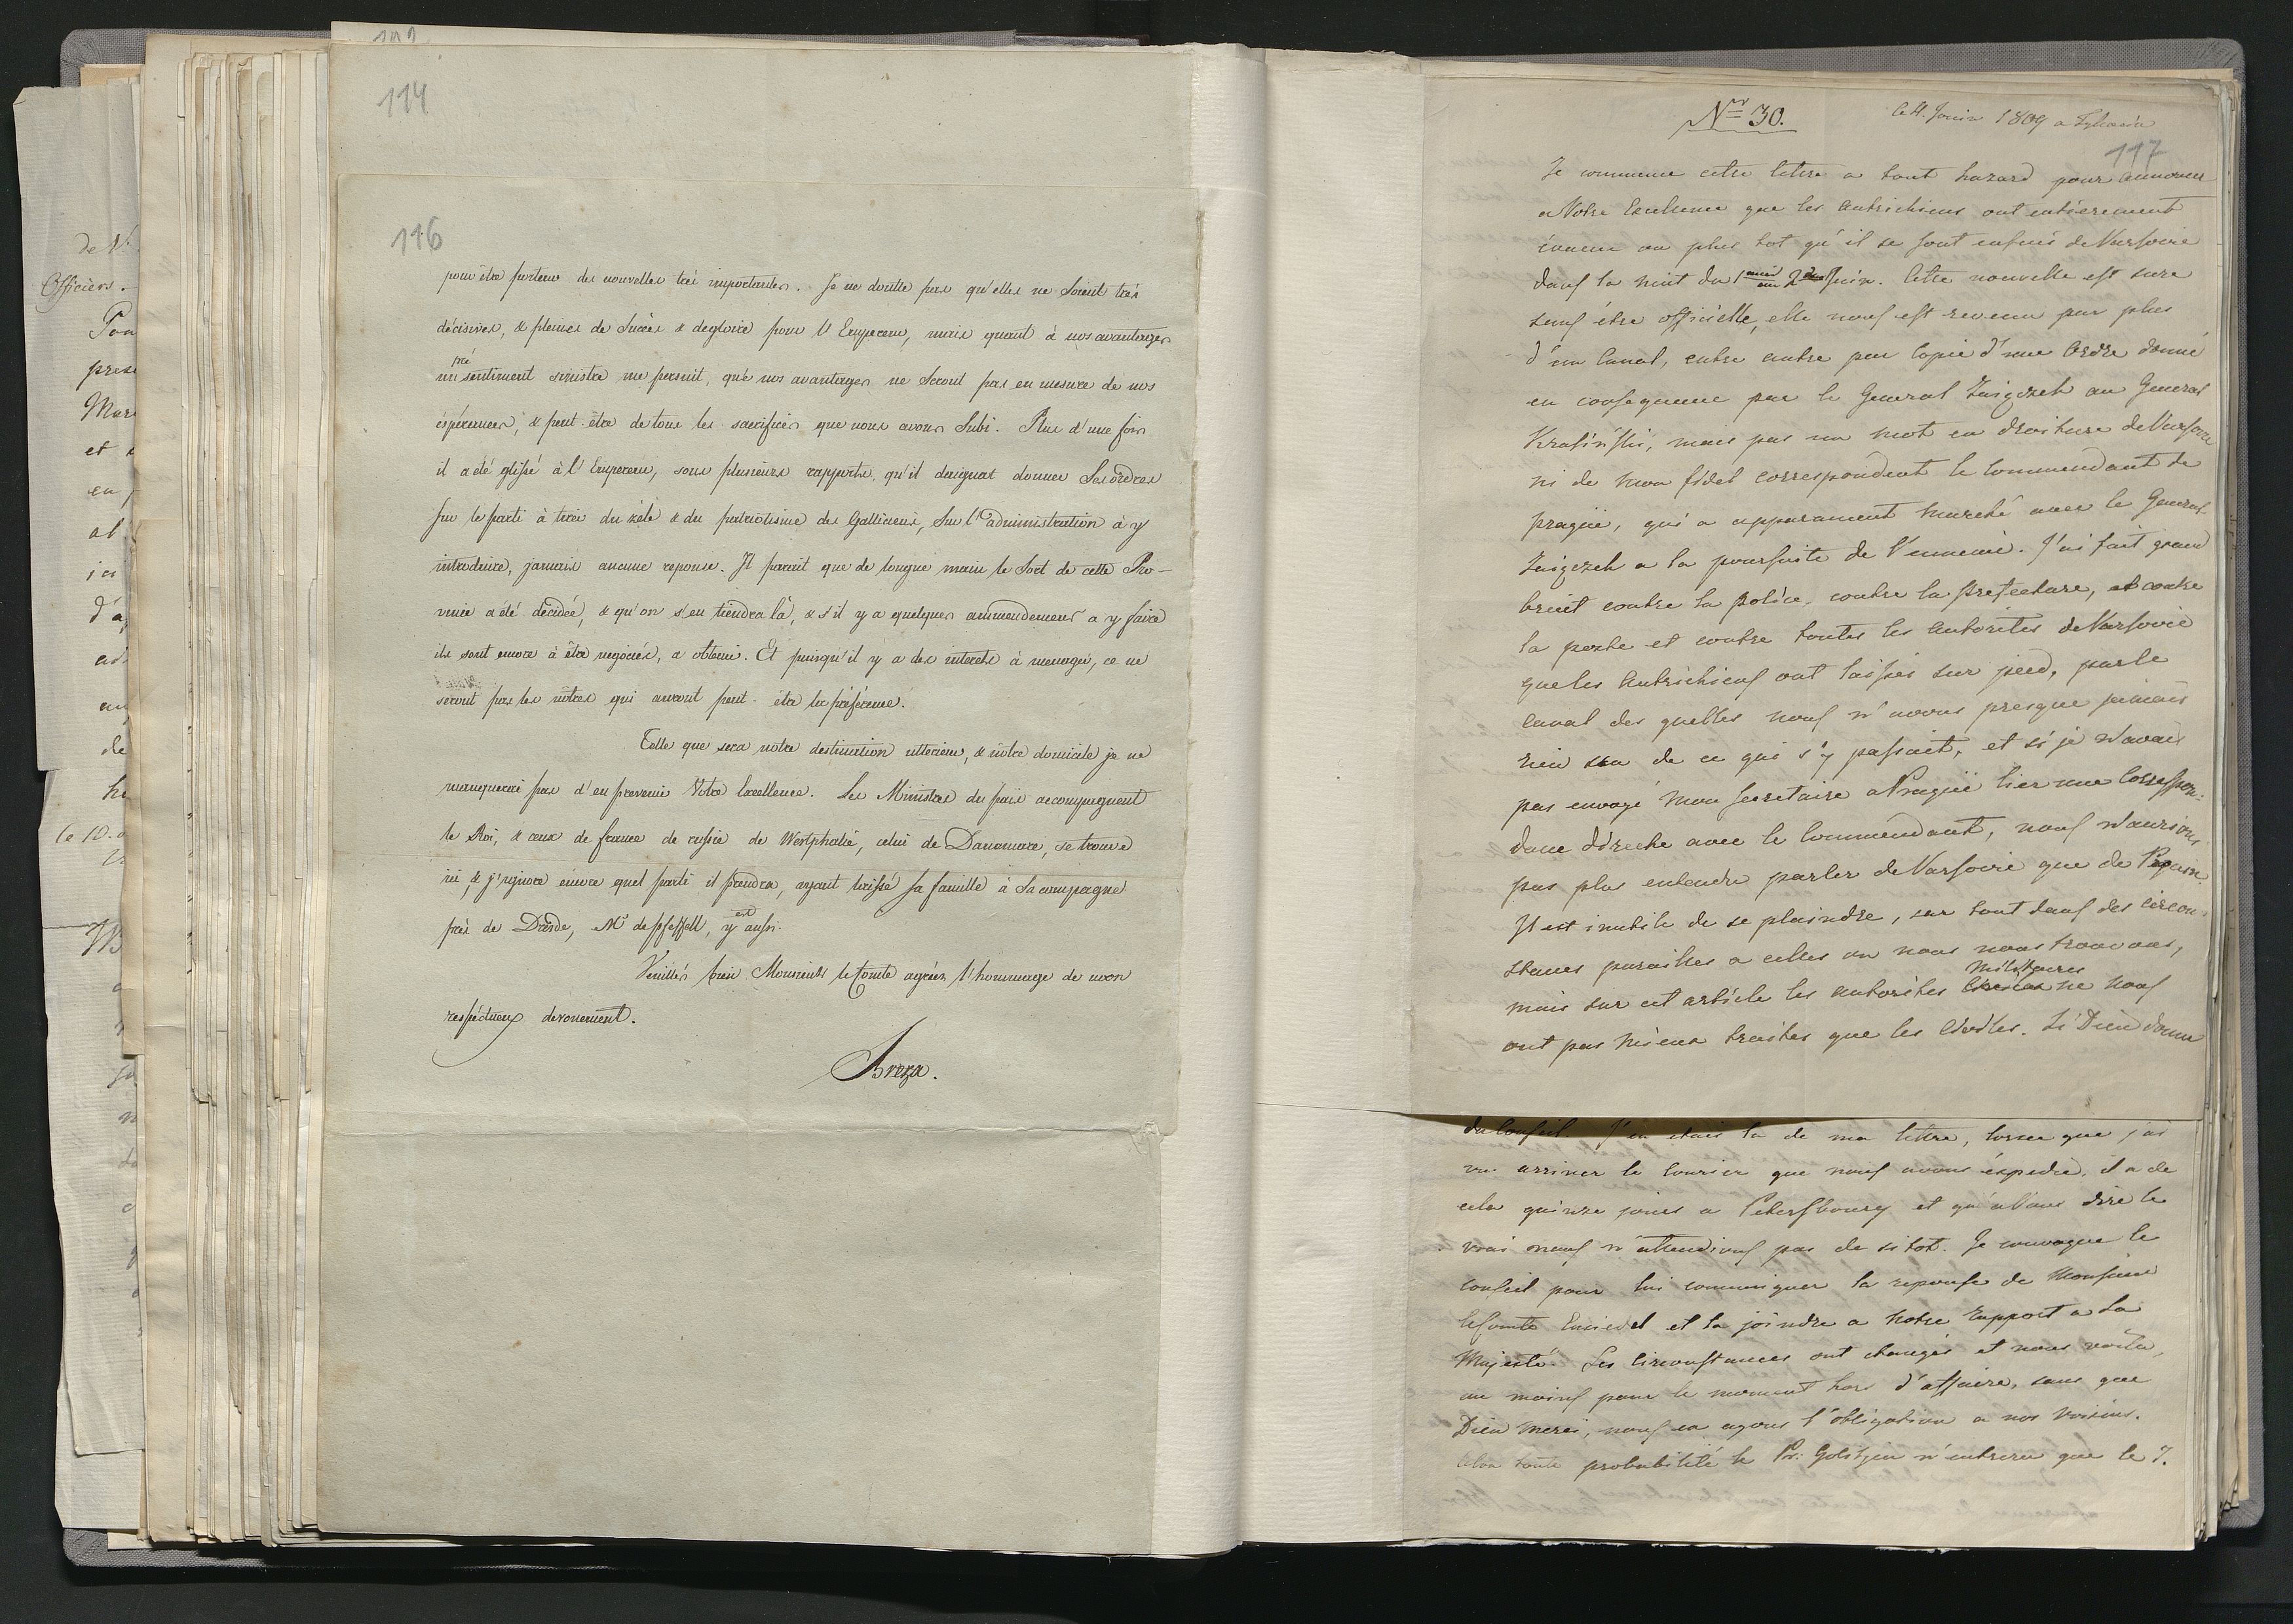 114
116
pour être porteur des nouvelles très importantes. Je ne doutte pas qu'elles ne soient très
décisives, & pleines de Succès & degloire pour l'Empereur, mais quant à nos avantages
un présentiment sinistre me persuit, que nos avantages ne seront pas en mesure de nos
espérences, & peut-être de tous les sacrifices que nous avons Subi. Plus d'une fois
il a été glissé à l'Empereur, sous plusieurs rapports, qu'il daignat donner Ses ordres
sur le parti à tirer du zèle & du patriotisme des Galliciens, Sur l'administration à y
introduire, jamais aucune reponse. Il parait que de longue main le Sort de cette Pro-
vince a été décidée, & qu'on s'en tiendra là, & s'il y a quelques ammendemens a y faire
ils sont encore à être negociés, a obtenir. Et puisqu'il y a des interets à menager, ce ne
seront pas les nôtres qui auront peut-être la préférence.
Telle que sera notre destination ulterieure, & nôtre domicile je ne
manquerai pas d'en prevenir Votre Excellence. Les Ministres du païs accompagnent
le Roi, & ceux de france de russie de Westphalie, celui de Dannemarc, se trouve
ici, & j'ignore encore quel parti il prendra, ayant laissé sa famille à Sa campagne
près de Dresde, Mr de pfeffell, y est aussi.
Veuillés bien Monsieur le Comte agréer l'hommage de mon
respéctueux devouement.
Breza.
Nro 30.
le 4. Juin 1809 a
117
Je commence cette lettre a tout hazard pour annoncer
a Votre Excellence que les Autrichiens ont entierement
évacué ou plus tot qu'il se sont enfuis de Varsovie
dans la nuit du 1 au 2 Juin. Cette nouvelle est sure
sans être officielle, elle nous est revenu par plus
d'un Canal, entre autre par Copie d'une Ordre donné
en consequence par le General Zaigczek au General
Krasinski, mais pas un mot en droiture de Varsovie
ni de mon fidel correspondent le Commendant de
pragüe, qui a apparament marché avec le General
Zaigczek a la poursuite de l'ennemie. J'ai fait grand
bruit contre la police, contre la prefecture, et contre
la poste et contre toutes les autorites de Varsovie
que les Autrichiens ont laissés sur pied, par le
Canal des quelles nous n'avons presque jamais
rien su de ce qui s'y passait, et si je n'avais
pas envoyé mon Secretaire a Pragüe lier une Correspon-
dance directe avec le Commendant, nous n'aurions
pas plus entendre parler de Varsovie que de
Il est inutile de se plaindre, sur tout dans des circon-
stances pareilles a celles ou nous nous trouvons,
mais sur cet article les autorites Militaires ne nous
ont pas mieux traites que les Civiles. Si Dieu donne
du Conseil. J'en etais la de ma lettre, lorsque j'ai
vu arriver le Courier que nous avons éxpedié, il a de
cela quinze jours a Petersbourg et qu'a Vous dire le
vrai nous n'attendions pas de sitot. Je convoque le
Conseil pour lui communiquer la reponse de Monsieur
le Comte et la joindre a notre rapport a Sa
Majesté. Les Circonstances ont changés et nous voila,
au moins pour le moment hors d'affaire, sans que
Dieu merci, nous en ayons l'obligation a nos voisins.
Selon toute probabilité le Pr: Golitzin n'entrera que le 7.